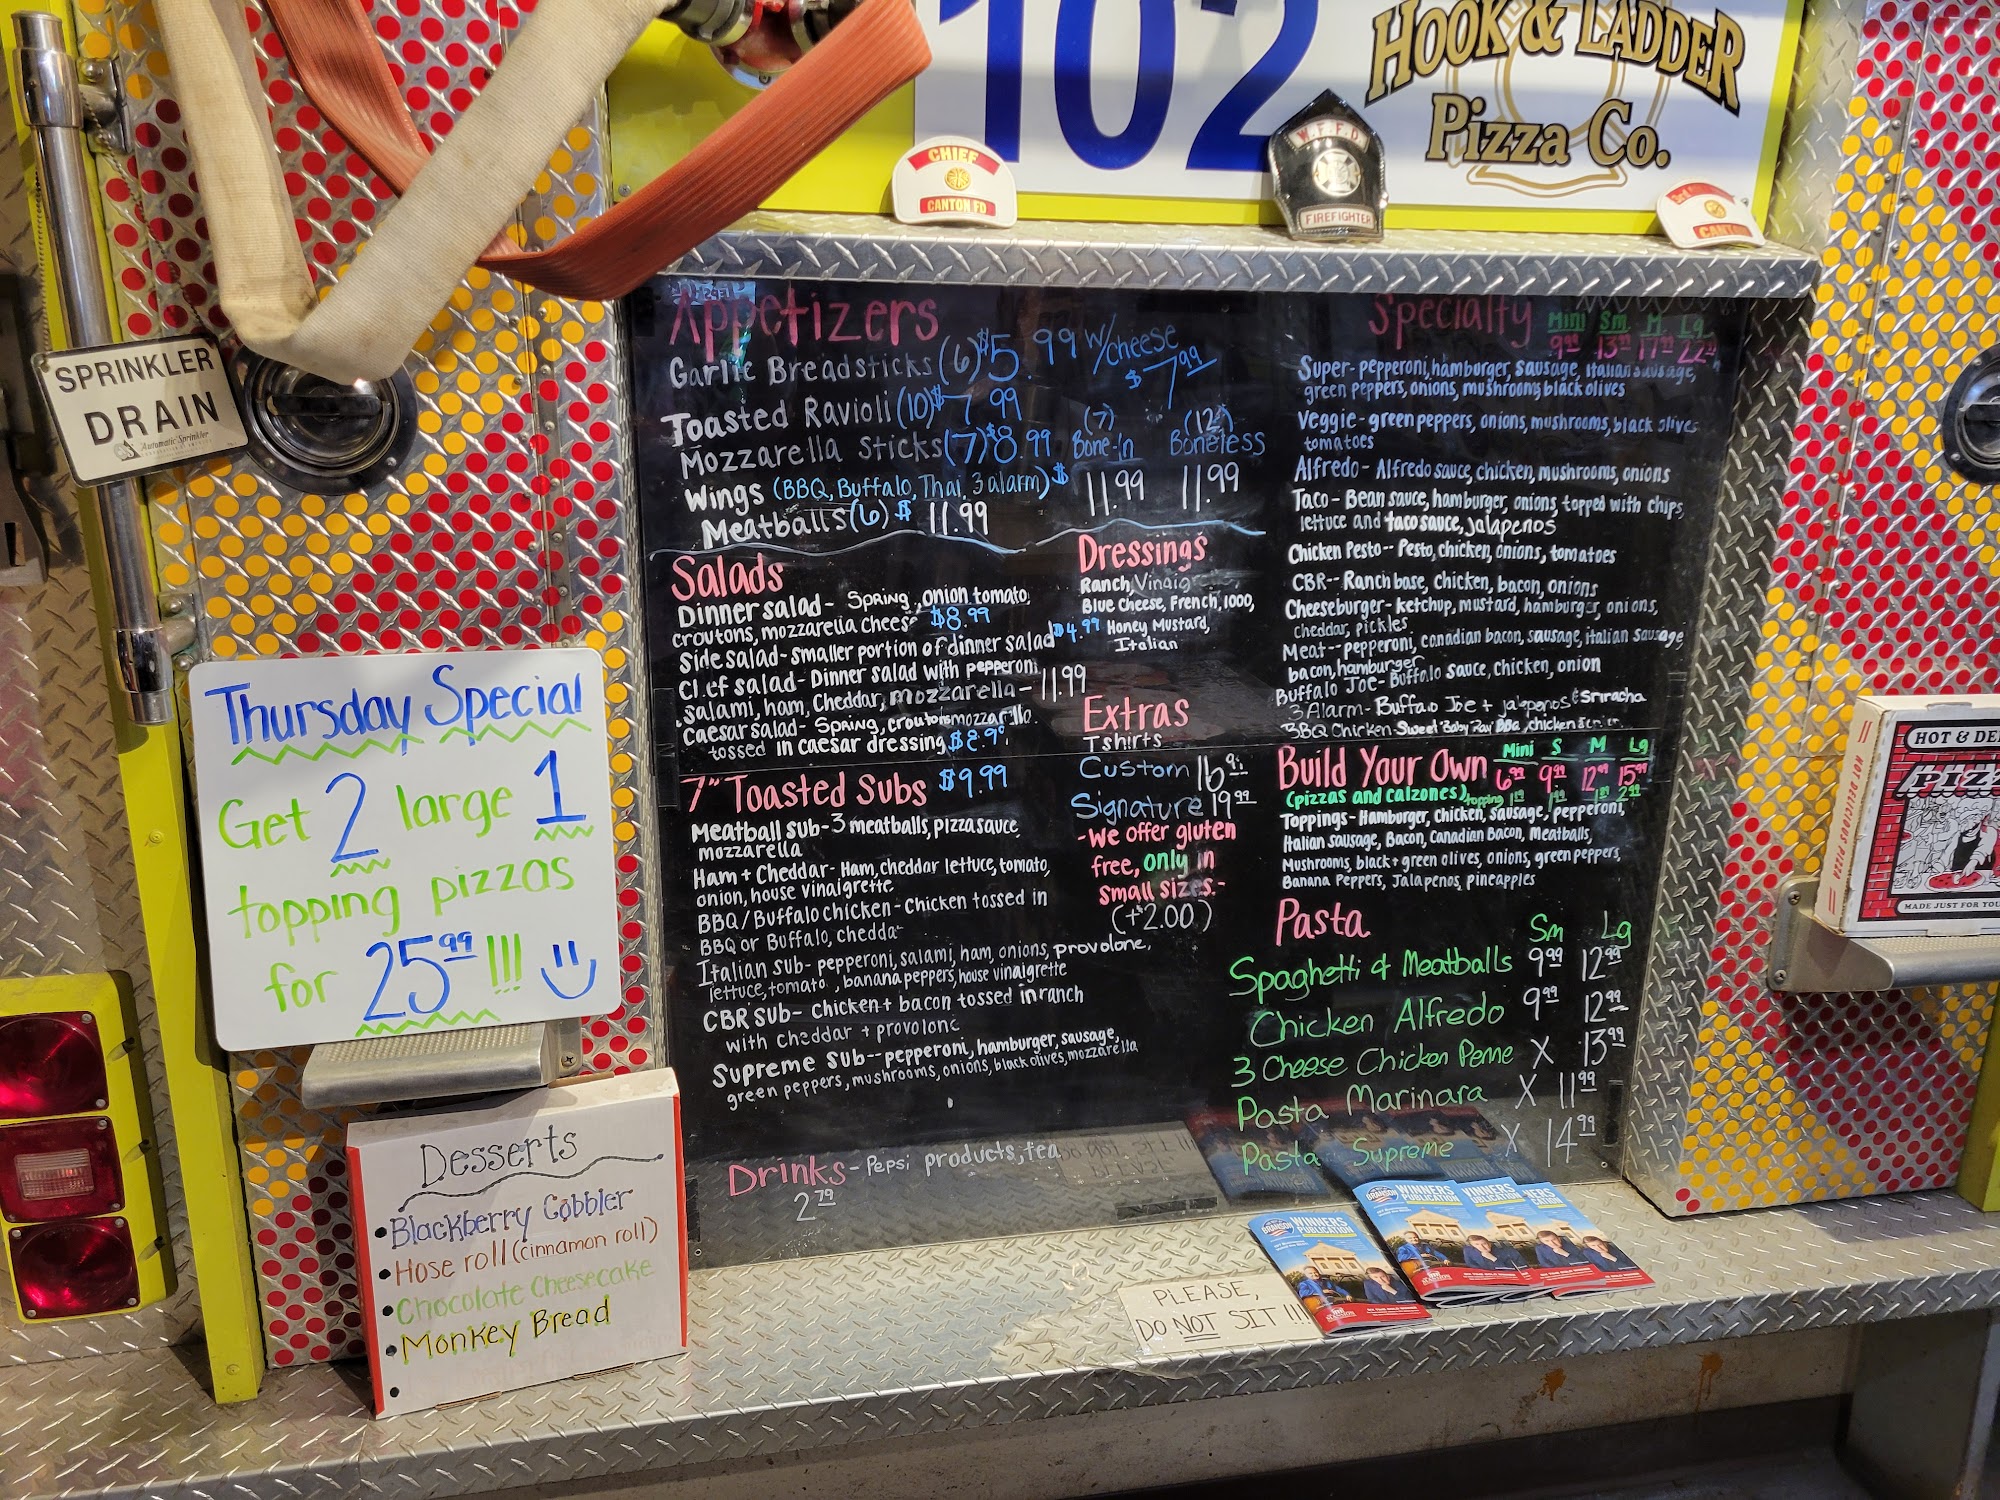 102
HOOK & LADDER
Pizza Co.
CHIEF
CANTON FD
W.F.F.D
FIREFIGHTER
SPRINKLER
DRAIN
Automatic Sprinkler
Thursday Special
Get 2 large 1
topping pizzas
for 25.99 !!!
Desserts
• Blackberry Cobbler
• Hose roll (cinnamon roll)
• Chocolate Cheesecake
• Monkey Bread
•
Appetizers
Garlic Breadsticks (6) $5.99 w/cheese $7.99
Toasted Ravioli (10) $7.99
Mozzarella Sticks (7) $8.99
(7) Bone-In (12) Boneless
Wings (BBQ, Buffalo, Thai, 3 alarm) $ 11.99 11.99
Meatballs (6) $ 11.99
Salads
Dinner salad - Spring, onion tomato,
croutons, mozzarella cheese $8.99
Side salad - smaller portion of dinner salad $4.99
Chef salad - Dinner salad with pepperoni,
salami, ham, Cheddar, mozzarella - 11.99
Caesar salad - Spring, croutons mozzarella
tossed in caesar dressing
Dressings
Ranch, Vinaig
Blue Cheese, French, 1000,
Honey Mustard,
Italian
Extras
Tshirts
Custom
Signature 19.99
-We offer gluten
free, only in
small sizes.-
(+$2.00)
7" Toasted Subs $9.99
Meatball sub - 3 meatballs, pizza sauce,
mozzarella
Ham + Cheddar - Ham, cheddar lettuce, tomato,
onion, house vinaigrette
BBQ/Buffalo chicken - Chicken tossed in
BBQ or Buffalo, chedda
Italian sub - pepperoni, salami, ham, onions, provolone,
lettuce, tomato, banana peppers, house vinaigrette
CBR sub - chicken + bacon tossed in ranch
with cheddar + provolone
Supreme sub -- pepperoni, hamburger, sausage,
green peppers, mushrooms, onions, black olives, mozzarella
Drinks - Pepsi products, tea
2.79
Specialty Mini Sm M Lg
9.99 13.99 17.99 22.99
Super - pepperoni, hamburger, sausage, italian sausage,
green peppers, onions, mushrooms, black olives
Veggie - green peppers, onions, mushrooms, black olives
tomatoes
Alfredo - Alfredo sauce, chicken, mushrooms, onions
Taco - Bean sauce, hamburger, onions, topped with chips,
lettuce and taco sauce, jalapenos
Chicken Pesto -- Pesto, chicken, onions, tomatoes
CBR -- Ranch base, chicken, bacon, onions
Cheeseburger - ketchup, mustard, hamburger, onions,
cheddar, pickles
Meat -- pepperoni, canadian bacon, sausage, italian sausage
bacon, hamburger
Buffalo Joe - Buffalo sauce, chicken, onion
3 Alarm - Buffalo Joe + jalepenos & Sriracha
BBQ Chicken - Sweet Baby Ray BBQ, chicken
Build Your Own Mini S M Lg
6.99 9.99 12.99 15.99
(pizzas and calzones) topping
Toppings - Hamburger, chicken, sausage, pepperoni,
Italian sausage, Bacon, Canadian Bacon, Meatballs,
Mushrooms, black + green olives, onions, green peppers,
Banana Peppers, Jalapenos, pineapples
Pasta Sm Lg
Spaghetti & Meatballs 9.99 12.99
Chicken Alfredo 9.99 12.99
3 Cheese Chicken Penne X 13.99
Pasta Marinara X 11.99
Pasta Supreme X 14.99
PLEASE,
DO NOT SIT!!!
BRANSON
WINNERS
PUBLICATION
WINNERS
PUBLICATION
HOT & DE
MADE JUST FOR YOU
HOT DELICIOUS PIZZA